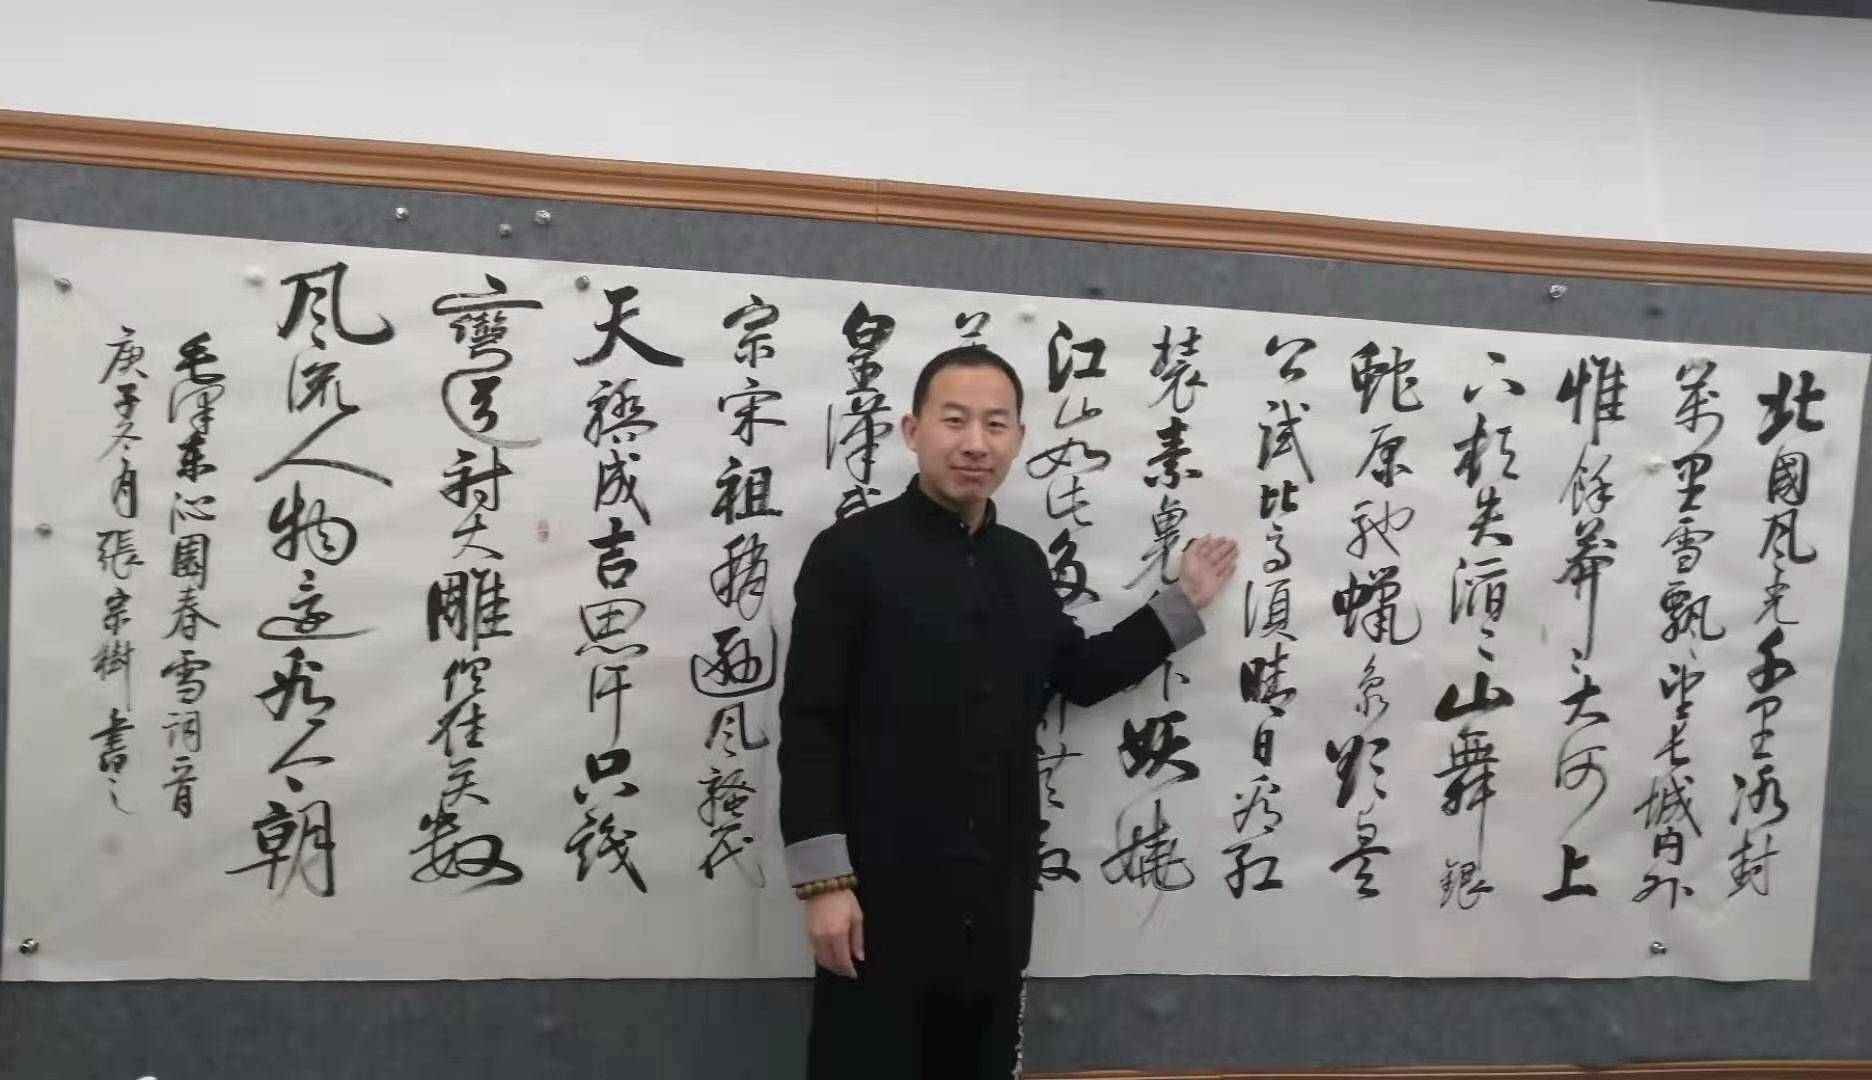 北國风光千里冰封
萬里雪飄望长城内外
惟餘莽〻大河上
下顿失滔〻山舞銀
蛇原驰蠟象欲与天
公試比高須晴日看红
装素裹外妖娆
江山如此多
皇漢武
宗宋祖稍遜风骚一代
天骄成吉思汗只識
彎弓射大雕俱往矣数
风流人物還看今朝
毛澤東沁園春雪词一首
庚子冬月張宗樹書之